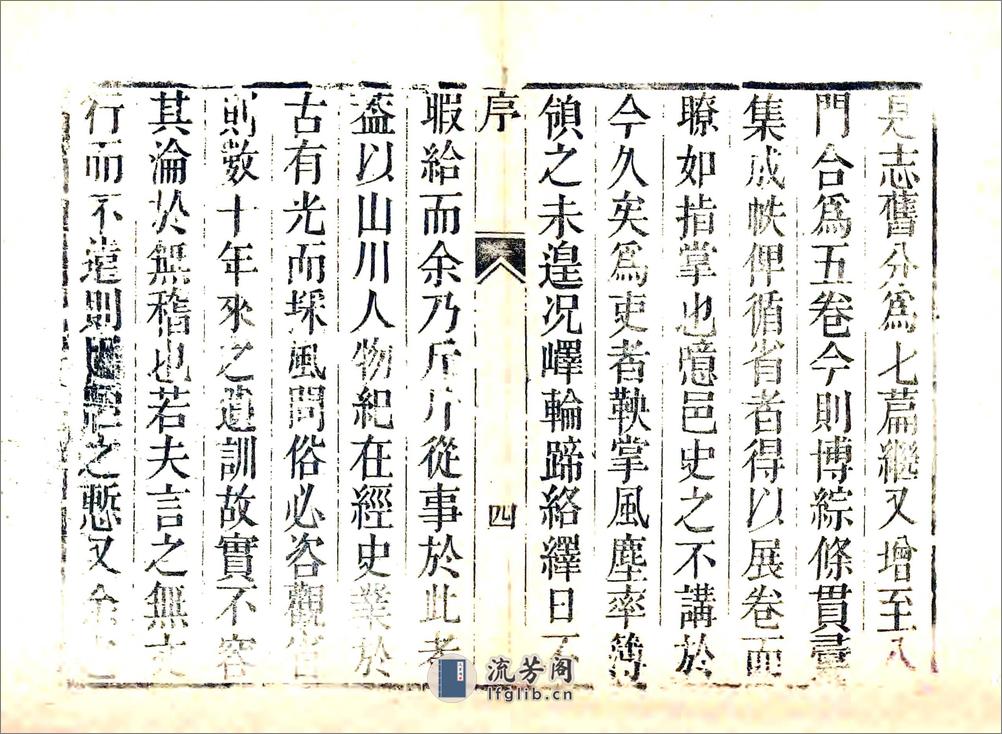 見志舊分為七篇繼又增至八
門合爲五卷今則博綜條貫彙
集成帙俾循省者得以展卷而
瞭如指掌也噫邑史之不講於
今久矣爲吏者鞅掌風塵率簿
領之未遑况嶧輪蹄絡繹日不
序
四
暇給而余乃斤斤從事於此者
葢以山川人物紀在經史業於
古有光而採風問俗必咨觀省
則數十年來之遺訓故實不容
其淪於無稽也若夫言之無文
行而不遠則 之慙又余
流芳阁
lfglib.cn